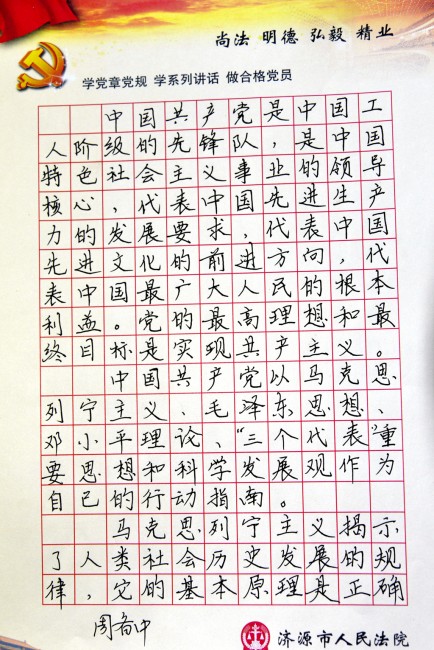 尚法 明德 弘毅 精业
学党章党规 学系列讲话 做合格党员
中国共产党是中国工
人阶级的先锋队，是中国
特色社会主义事业的领导
核心，代表中国先进生产
力的发展要求，代表中国
先进文化的前进方向，代
表中国最广大人民的根本
利益。党的最高理想和最
终目标是实现共产主义。
中国共产党以马克思
列宁主义、毛泽东思想、
邓小平理论、“三个代表”重
要思想和科学发展观作为
自己的行动指南。
马克思列宁主义揭示
了人类社会历史发展的规
律，它的基本原理是正确
济源市人民法院